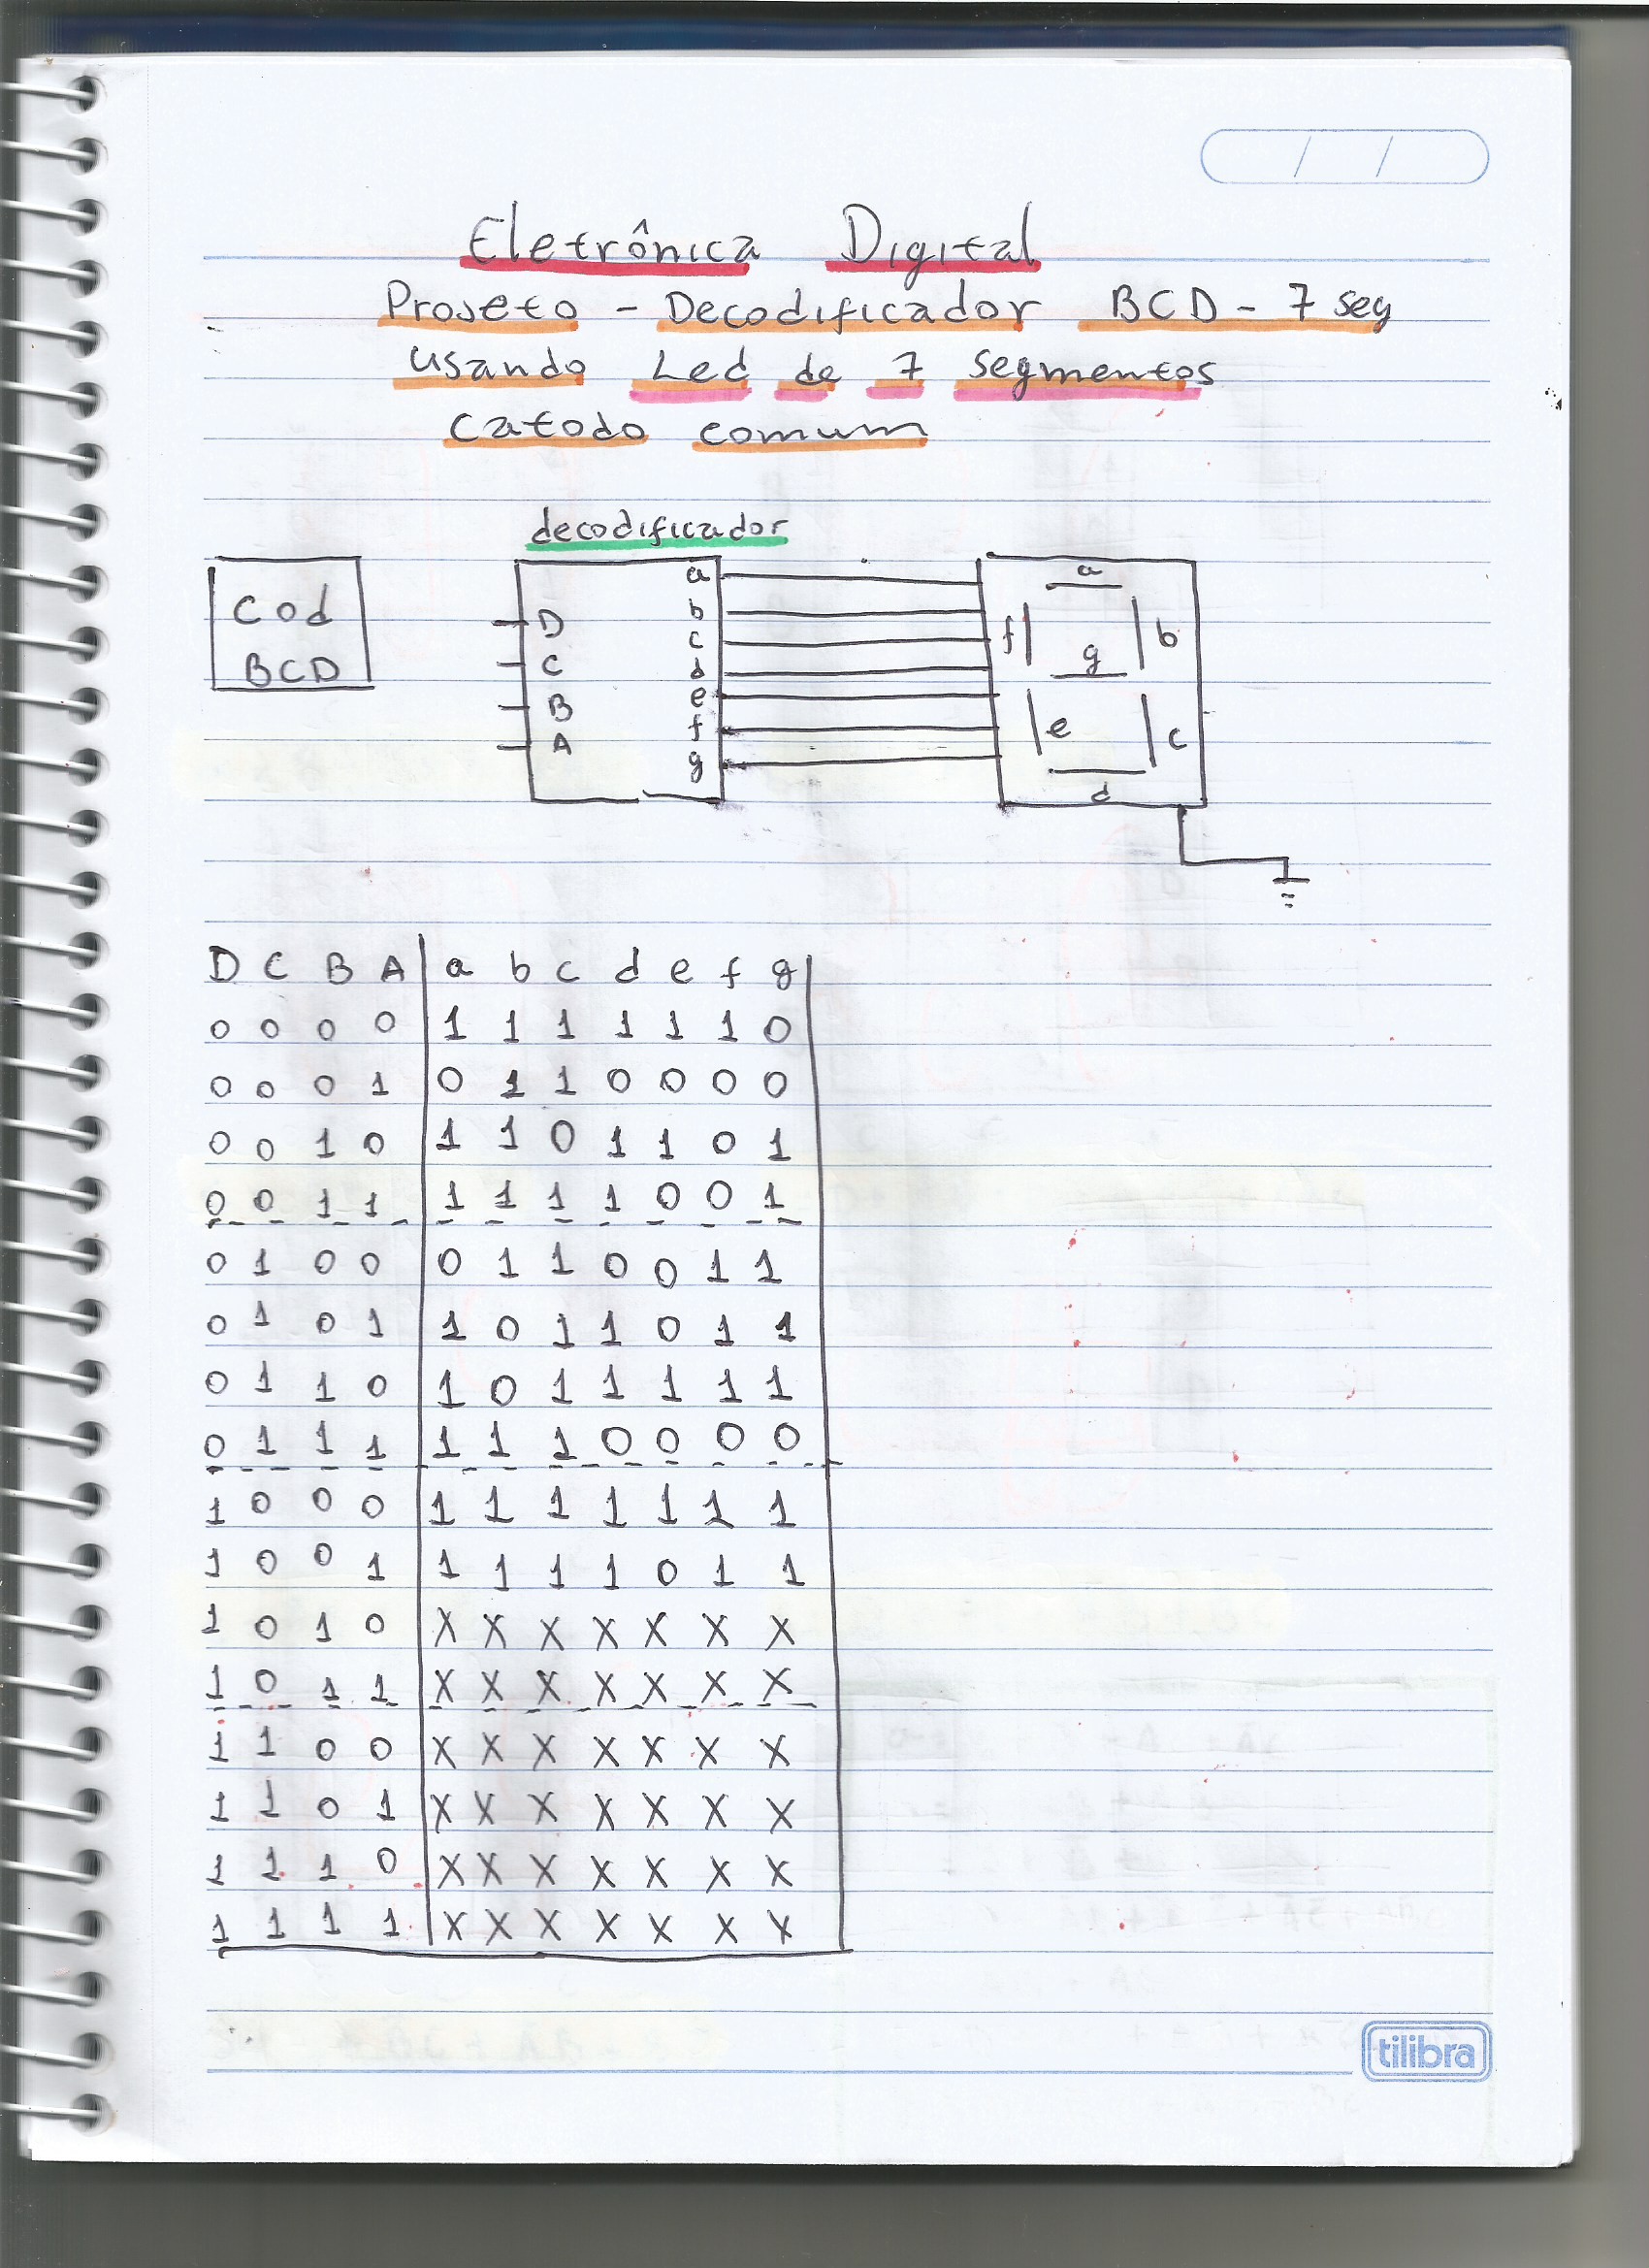 / /
Eletrônica Digital
Projeto - Decodificador BCD - 7 seg
usando Led de 7 segmentos
catodo comum
decodificador
Cod
BCD
D
C
B
A
a
b
c
d
e
f
g
a
f
b
g
e
c
d
D C B A a b c d e f g
0 0 0 0 1 1 1 1 1 1 0
0 0 0 1 0 1 1 0 0 0 0
0 0 1 0 1 1 0 1 1 0 1
0 0 1 1 1 1 1 1 0 0 1
0 1 0 0 0 1 1 0 0 1 1
0 1 0 1 1 0 1 1 0 1 1
0 1 1 0 1 0 1 1 1 1 1
0 1 1 1 1 1 1 0 0 0 0
1 0 0 0 1 1 1 1 1 1 1
1 0 0 1 1 1 1 1 0 1 1
1 0 1 0 X X X X X X X
1 0 1 1 X X X X X X X
1 1 0 0 X X X X X X X
1 1 0 1 X X X X X X X
1 1 1 0 X X X X X X X
1 1 1 1 X X X X X X X
tilibra